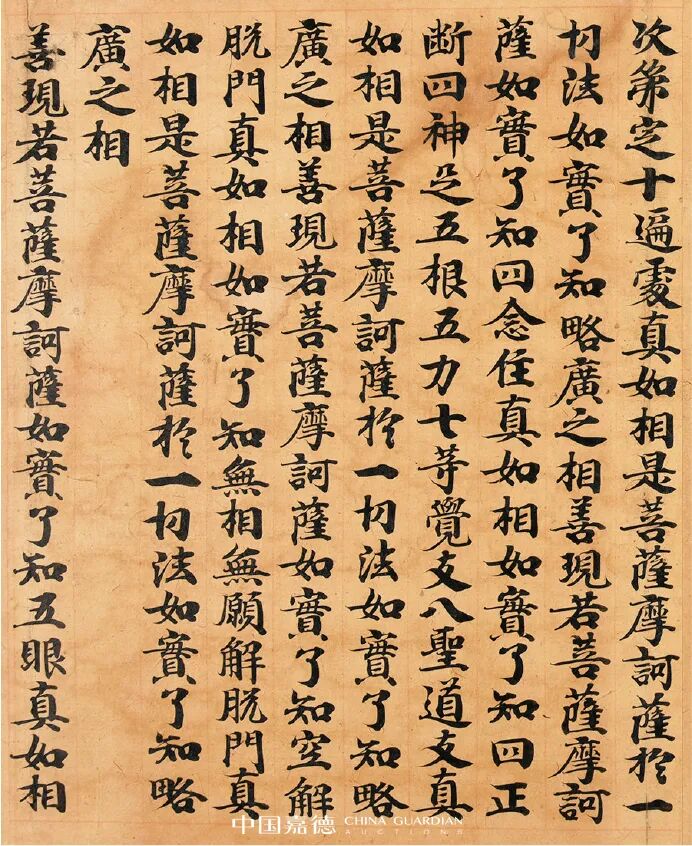 次第定十遍處真如相是菩薩摩訶薩於一
切法如實了知略廣之相善現若菩薩摩訶
薩如實了知四念住真如相如實了知四正
断四神足五根五力七等覺支八聖道支真
如相是菩薩摩訶薩於一切法如實了知略
廣之相善現若菩薩摩訶薩如實了知空解
脱門真如相如實了知無相無願解脱門真
如相是菩薩摩訶薩於一切法如實了知略
廣之相
善現若菩薩摩訶薩如實了知五眼真如相
中国嘉德 CHINA GUARDIAN
AUCTIONS